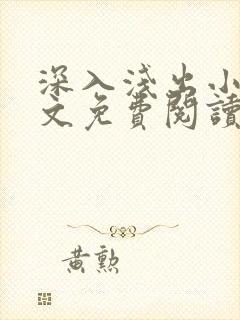 深入淺出小
文免費閱讀
黃勲